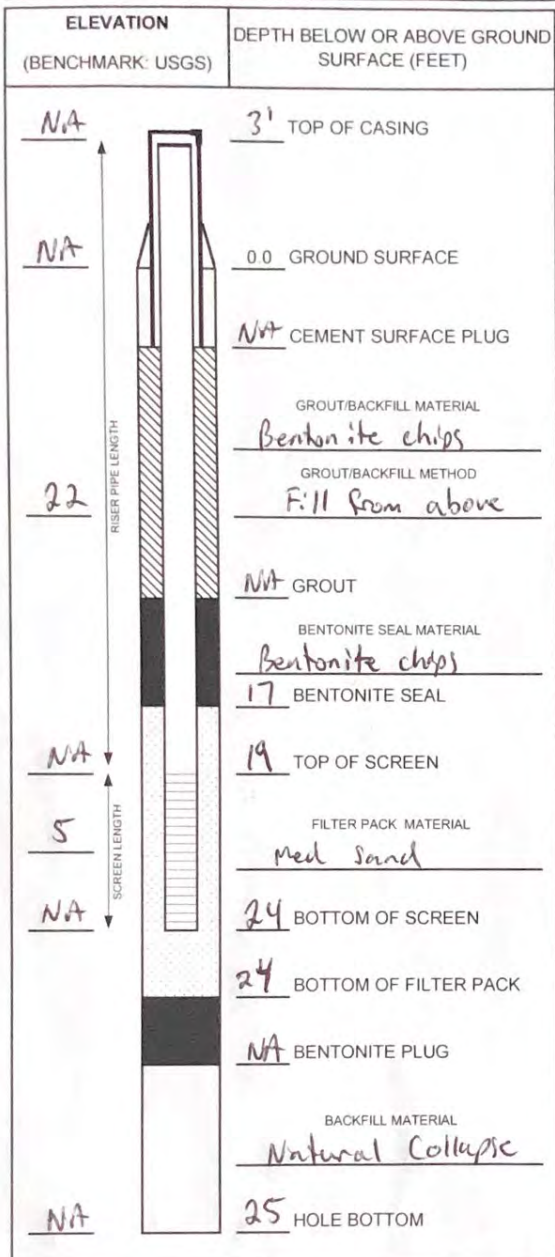 ELEVATION
(BENCHMARK: USGS)
DEPTH BELOW OR ABOVE GROUND
SURFACE (FEET)
NA 3' TOP OF CASING
NA 0.0 GROUND SURFACE
NA CEMENT SURFACE PLUG
GROUT/BACKFILL MATERIAL
Bentonite chips
GROUT/BACKFILL METHOD
22 RISER PIPE LENGTH Fill from above
NA GROUT
BENTONITE SEAL MATERIAL
Bentonite chips
17 BENTONITE SEAL
NA 19 TOP OF SCREEN
FILTER PACK MATERIAL
5 SCREEN LENGTH Med Sand
NA 24 BOTTOM OF SCREEN
24 BOTTOM OF FILTER PACK
NA BENTONITE PLUG
BACKFILL MATERIAL
Natural Collapse
NA 25 HOLE BOTTOM